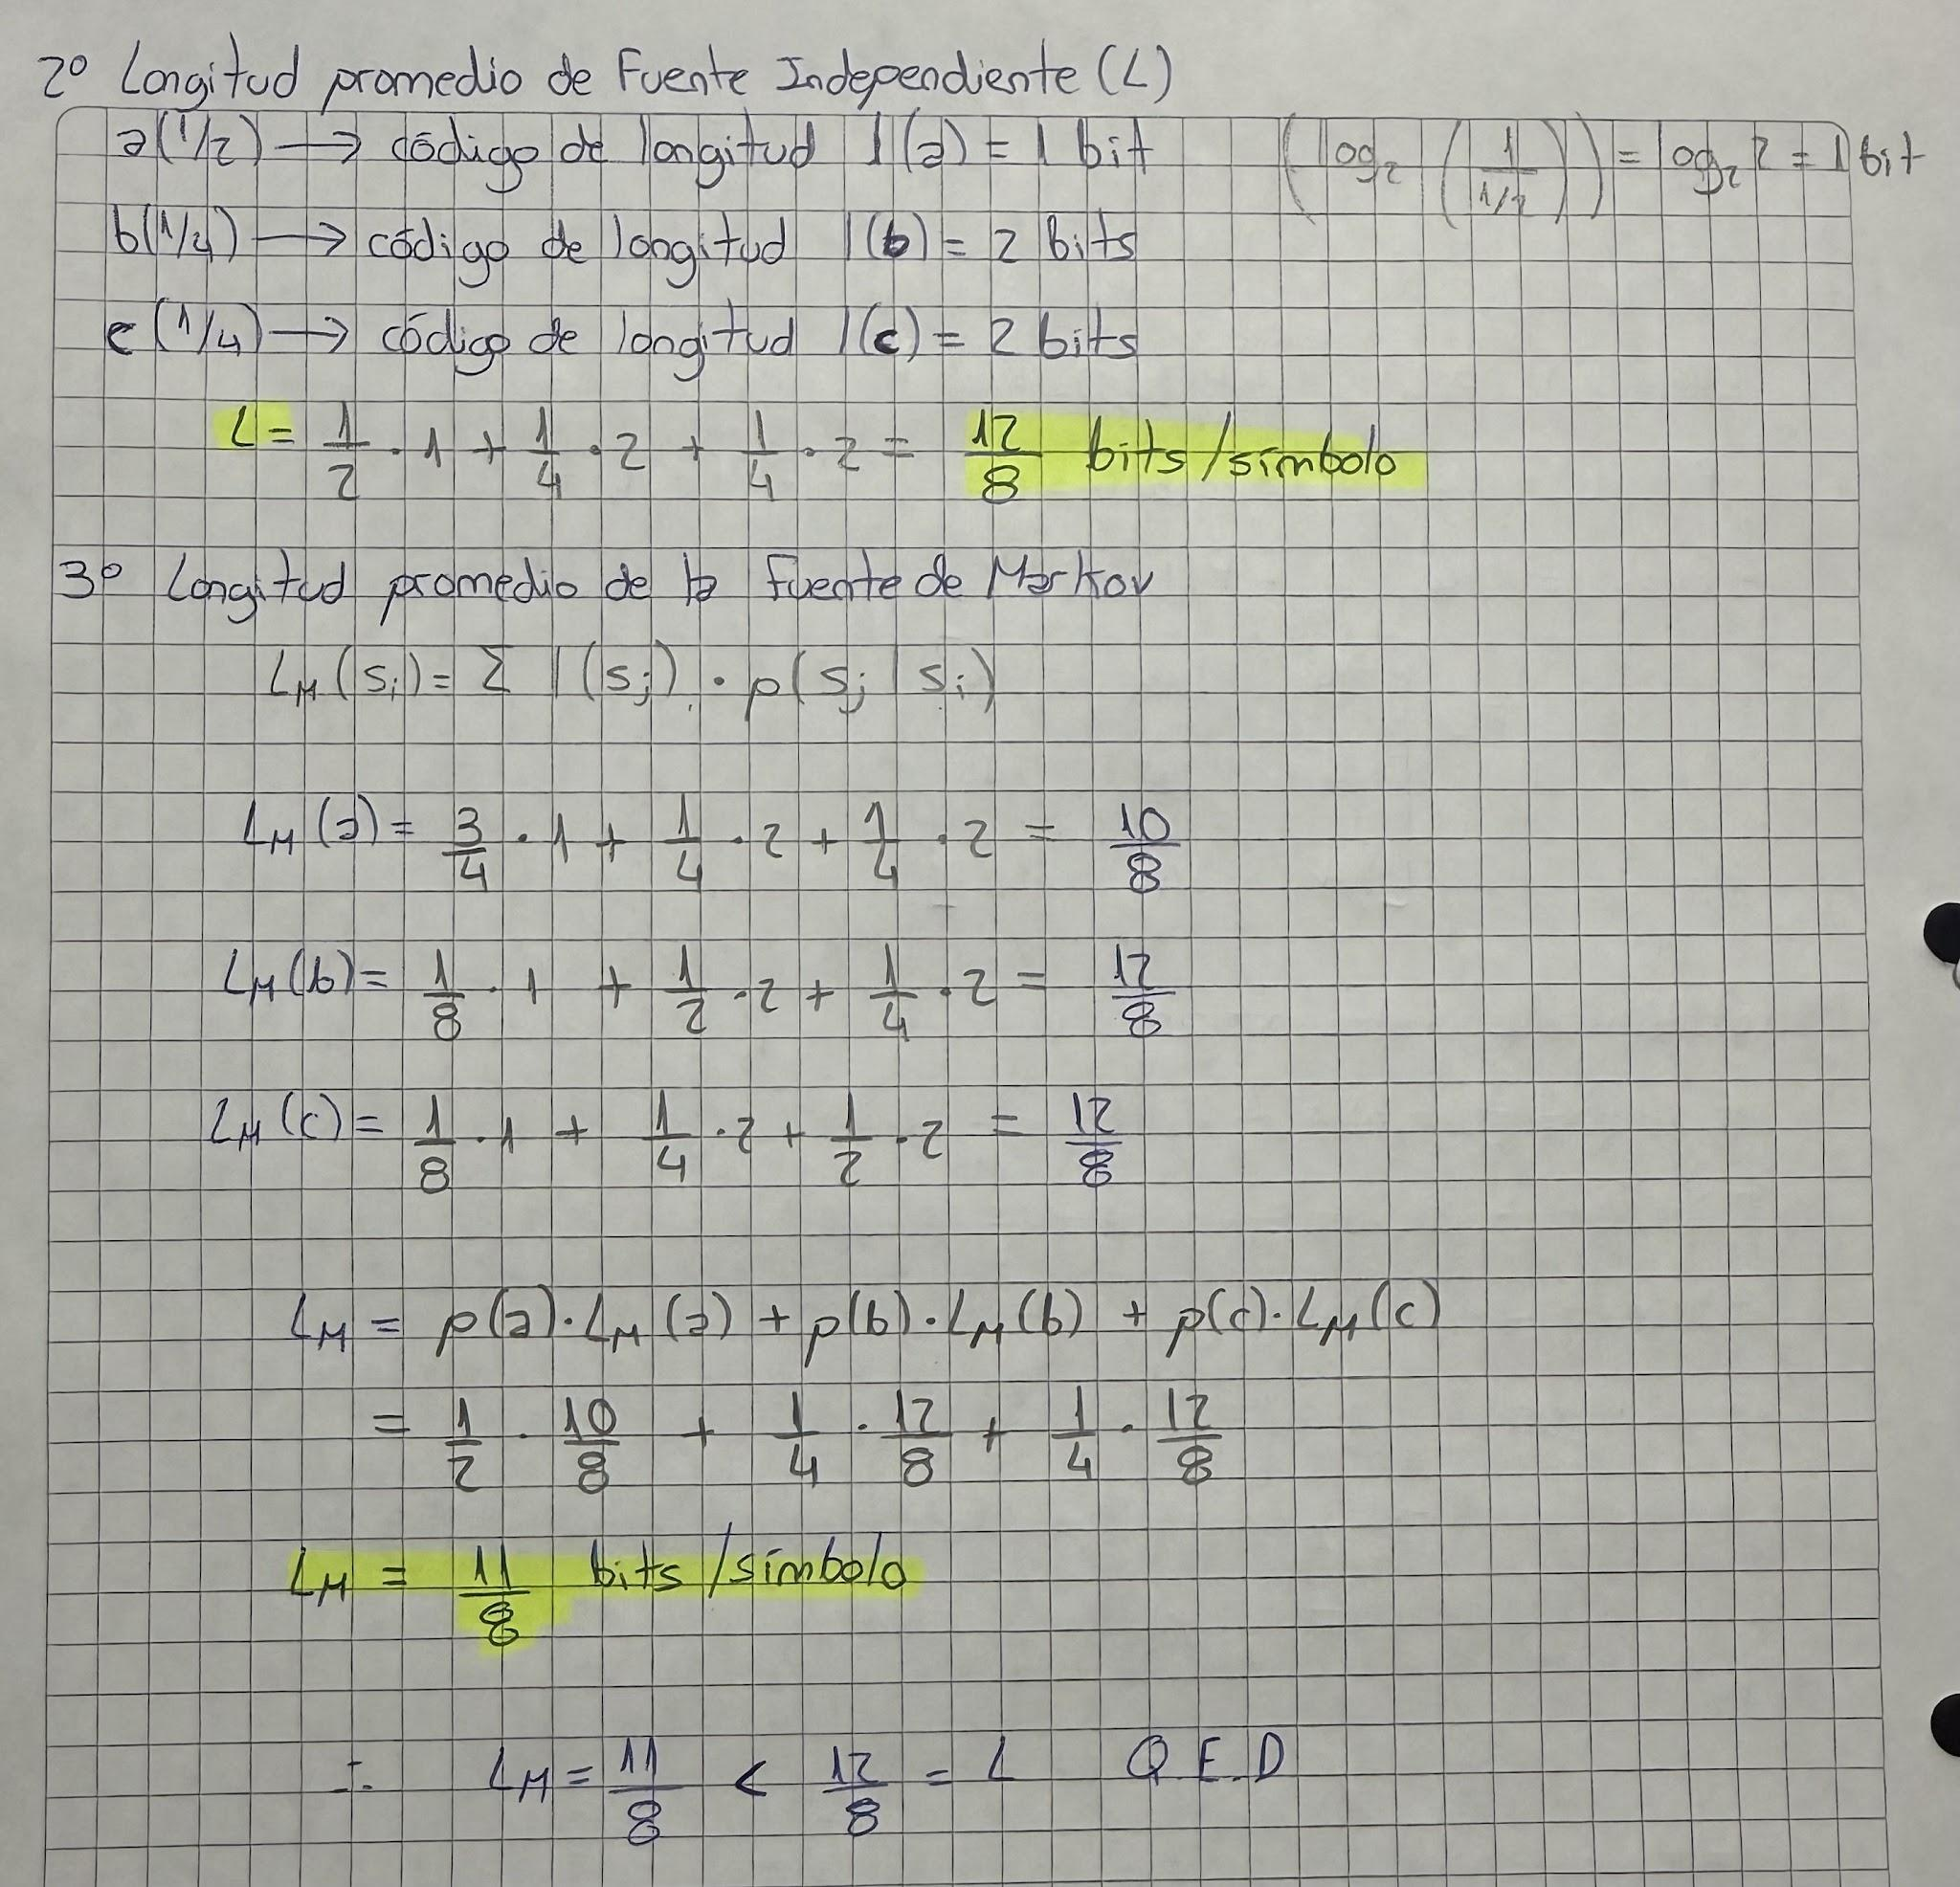 2º Longitud promedio de Fuente Independiente (L)
a(1/2) → código de longitud l(a) = 1 bit (log₂ (1/(1/2))) = log₂ 2 = 1 bit
b(1/4) → código de longitud l(b) = 2 bits
c(1/4) → código de longitud l(c) = 2 bits
L = 1/2 · 1 + 1/4 · 2 + 1/4 · 2 = 12/8 bits/símbolo
3º Longitud promedio de la fuente de Markov
L_M (s_i) = Σ l(s_j) · p(s_j | s_i)
L_M (a) = 3/4 · 1 + 1/4 · 2 + 1/4 · 2 = 10/8
L_M (b) = 1/8 · 1 + 1/2 · 2 + 1/4 · 2 = 12/8
L_M (c) = 1/8 · 1 + 1/4 · 2 + 1/2 · 2 = 12/8
L_M = p(a) · L_M (a) + p(b) · L_M (b) + p(c) · L_M (c)
= 1/2 · 10/8 + 1/4 · 12/8 + 1/4 · 12/8
L_M = 11/8 bits/símbolo
∴ L_M = 11/8 < 12/8 = L Q.E.D